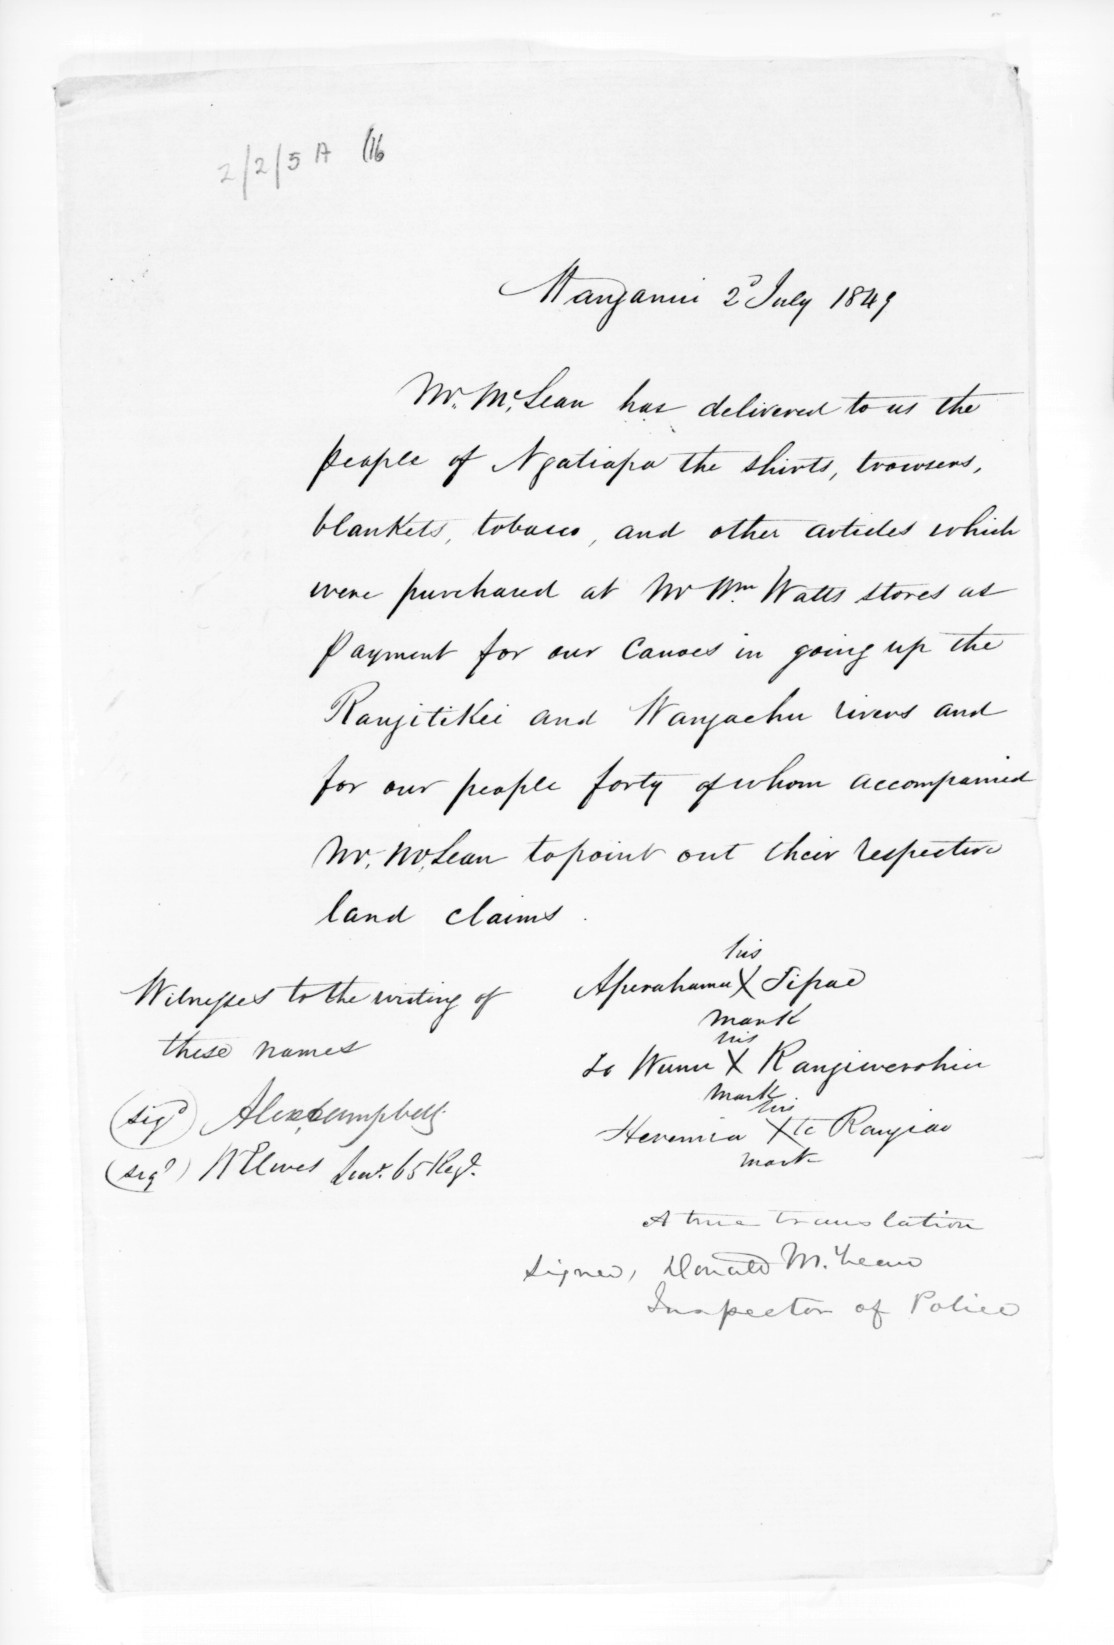 2/2/5 A (16
Wanganui 2d July 1849
Mr. McLean has delivered to us the
people of Ngatiapa the shirts, trowsers,
blankets, tobacco, and other articles which
were purchased at Mr Wm. Watts stores as
payment for our canoes in going up the
Rangitikei and Wangaehu rivers and
for our people forty of whom accompanied
Mr. McLean to point out their respective
land claims.
his
Aperahama X Tipae
mark
his
Wunu X Rangiwerohia
mark
his
Heremia X te Rangiao
mark
Witnesses to the writing of
these names
(sigd) Alex Campbell
(sigd) Elwes Leut. 65 Regt.
A true translation
Signed, Donald McLean
Inspector of Police